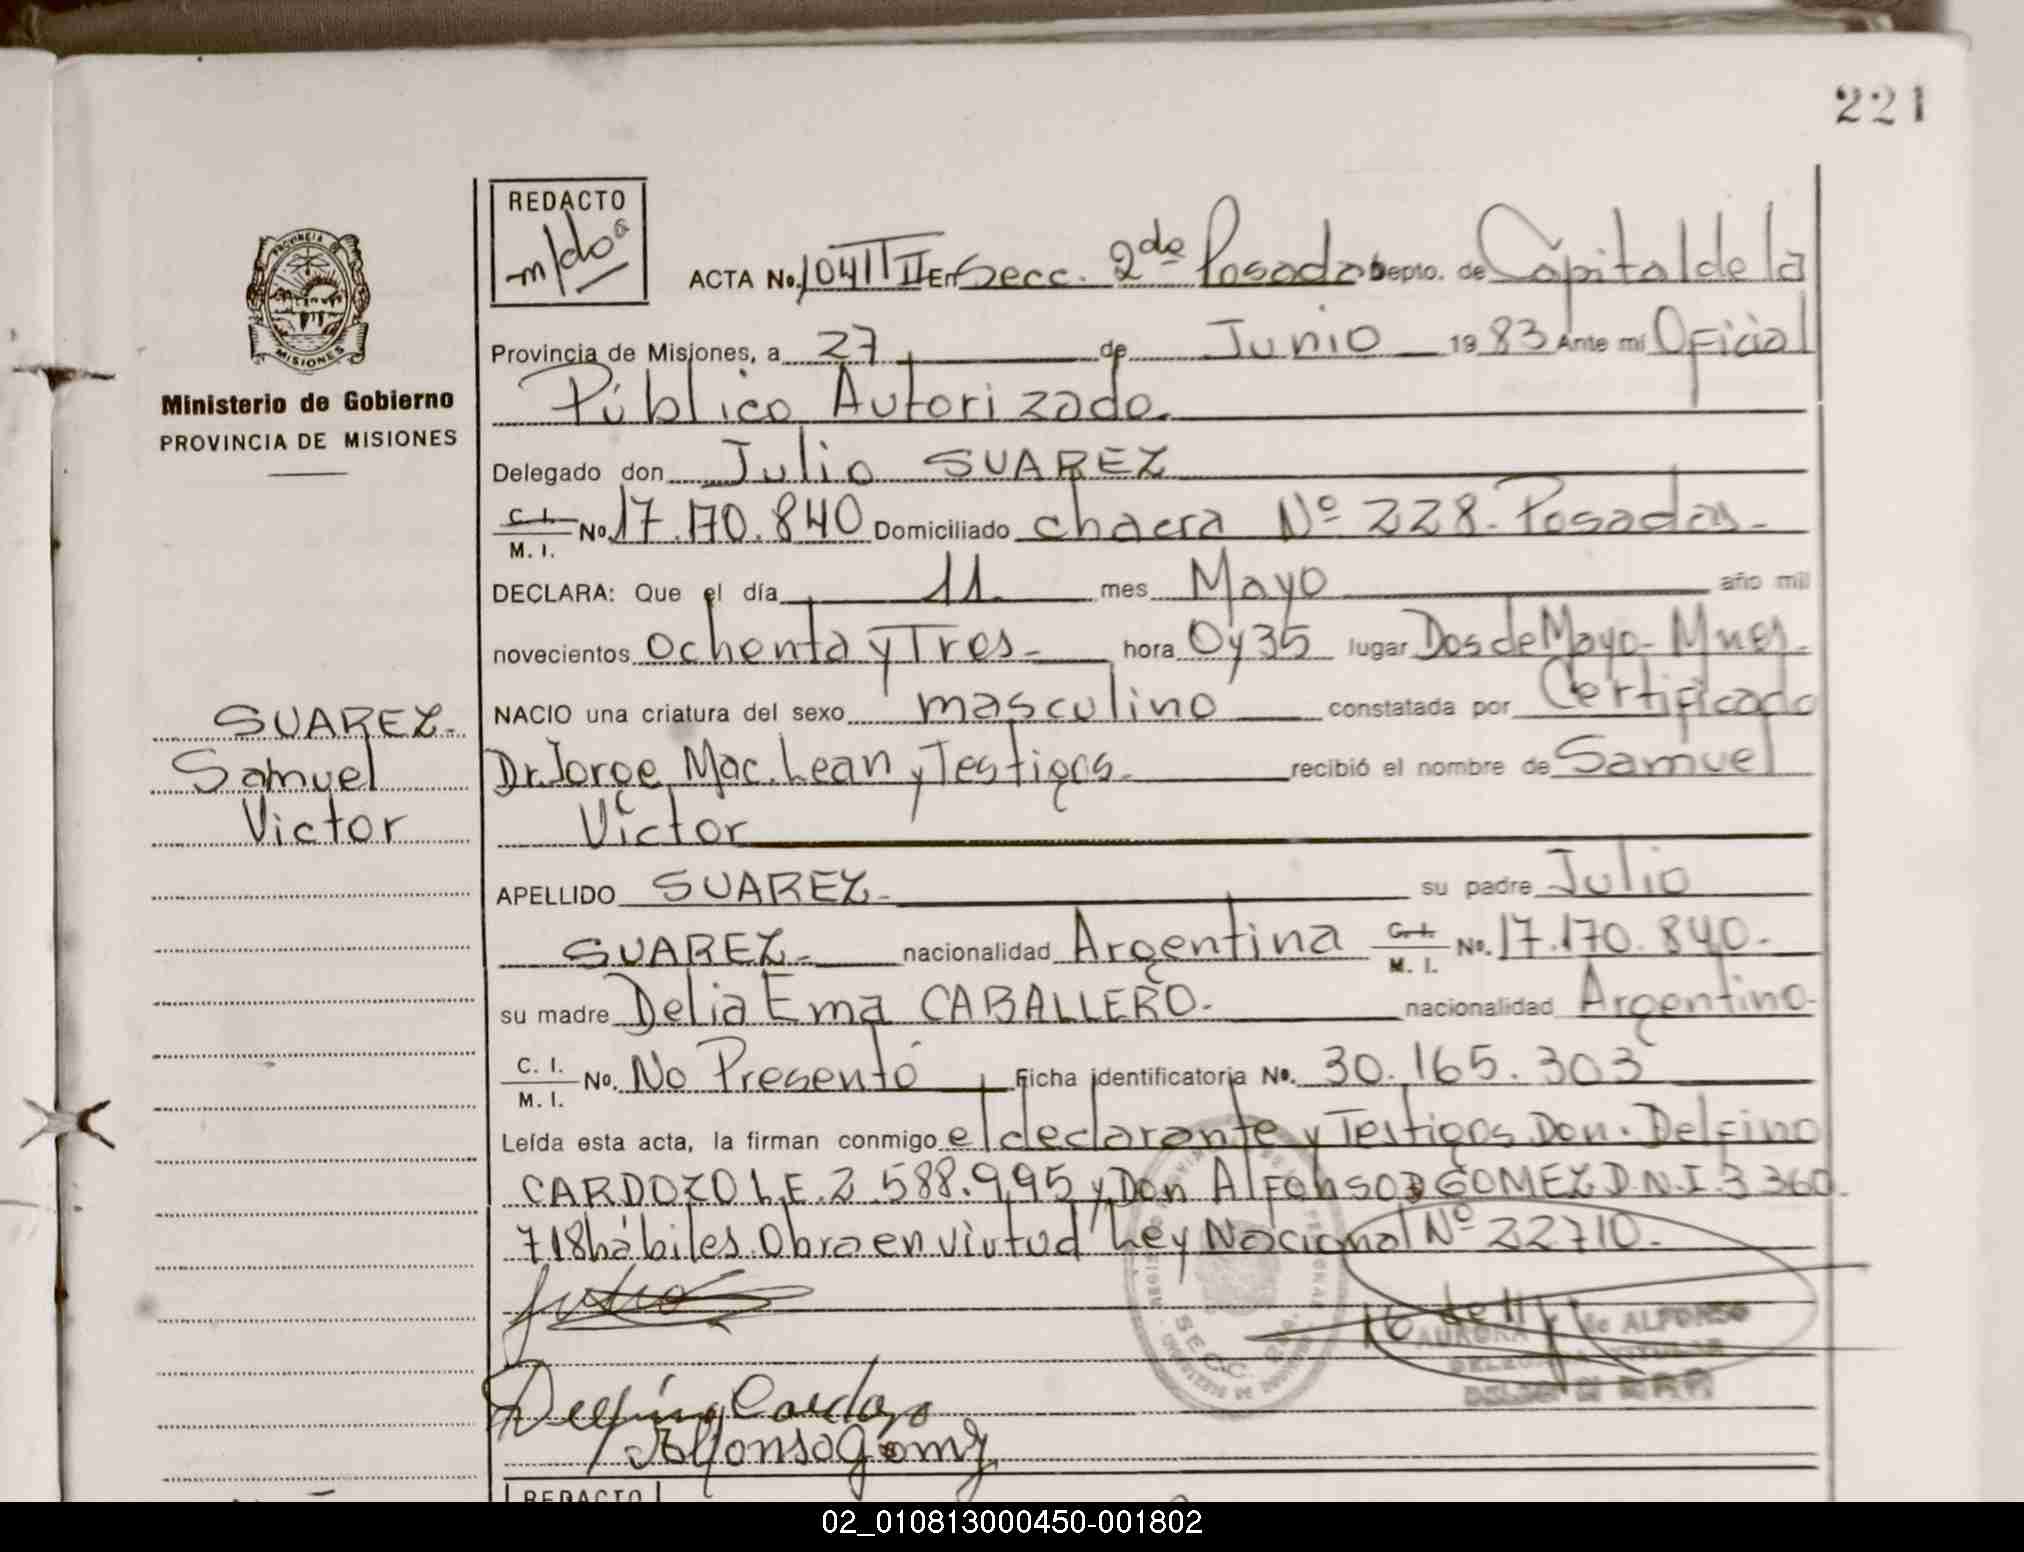 221
REDACTO
PROVINCIA
MISIONES
Ministerio de Gobierno
PROVINCIA DE MISIONES
ACTA No. En Secc. 2da Posadas Depto. de Capital de la
Provincia de Misiones, a 27 de Junio 1983 Ante mi Oficial
Público Autorizado.
Delegado don Julio SUAREZ
C. I. No. 17.170.840 Domiciliado chacra Nº 228. Posadas.
M. I.
DECLARA: Que el día 11. mes Mayo año mil
novecientos ochenta y Tres. hora 0y35 lugar Dos de Mayo- Mnes.
NACIO una criatura del sexo masculino constatada por Certificado
Dr. Jorge Mac. Lean y Testigos. recibió el nombre de Samuel
Víctor
SUAREZ.
Samuel
Victor
APELLIDO SUAREZ. su padre Julio
SUAREZ. nacionalidad Argentina C. I. No. 17.170.840.
M. I.
su madre Delia Ema CABALLERO. nacionalidad Argentina.
C. I. No. No Presentó Ficha identificatoria No. 30.165.303
M. I.
Leída esta acta, la firman conmigo el declarante y Testigos Don. Delfino
CARDOZO L.E. 2.588.995 y Don Alfonso GOMEZ D.N.I. 3 360.
718 hábiles. Obra en virtud Ley Nacional Nº 22710.
de ALFONSO
SECC. 2da
Delfino Cardozo
Alfonso Gomez
REDACTO
02_010813000450-001802